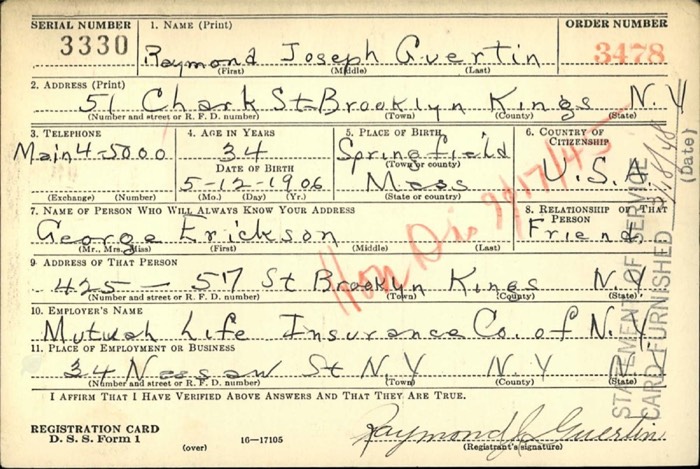 SERIAL NUMBER 1. NAME (Print) ORDER NUMBER
3330 Raymond Joseph Guertin 3478
(First) (Middle) (Last)
2. ADDRESS (Print)
51 Clark St Brooklyn Kings N.Y
(Number and street or R. F. D. number) (Town) (County) (State)
3. TELEPHONE 4. AGE IN YEARS 5. PLACE OF BIRTH 6. COUNTRY OF CITIZENSHIP
Main 4-5000 34 Springfield
DATE OF BIRTH (Town or county) U.S.A.
5-12-1906 Mass
(Exchange) (Number) (Mo.) (Day) (Yr.) (State or country)
7. NAME OF PERSON WHO WILL ALWAYS KNOW YOUR ADDRESS 8. RELATIONSHIP OF THAT PERSON
George Erickson Friend
(Mr., Mrs., Miss) (First) (Middle) (Last)
9. ADDRESS OF THAT PERSON
425 - 57 St Brooklyn Kings N.Y.
(Number and street or R. F. D. number) (Town) (County) (State)
10. EMPLOYER'S NAME
Mutual Life Insurance Co. of N.Y.
11. PLACE OF EMPLOYMENT OR BUSINESS
34 Nassau St N.Y N.Y N.Y.
(Number and street or R. F. D. number) (Town) (County) (State)
I AFFIRM THAT I HAVE VERIFIED ABOVE ANSWERS AND THAT THEY ARE TRUE.
REGISTRATION CARD
D. S. S. Form 1 (over) 16-17105
Raymond J Guertin
(Registrant's signature)
Hon Dis 9/17/45
STATEMENT OF SERVICE
CARD FURNISHED
(Date)